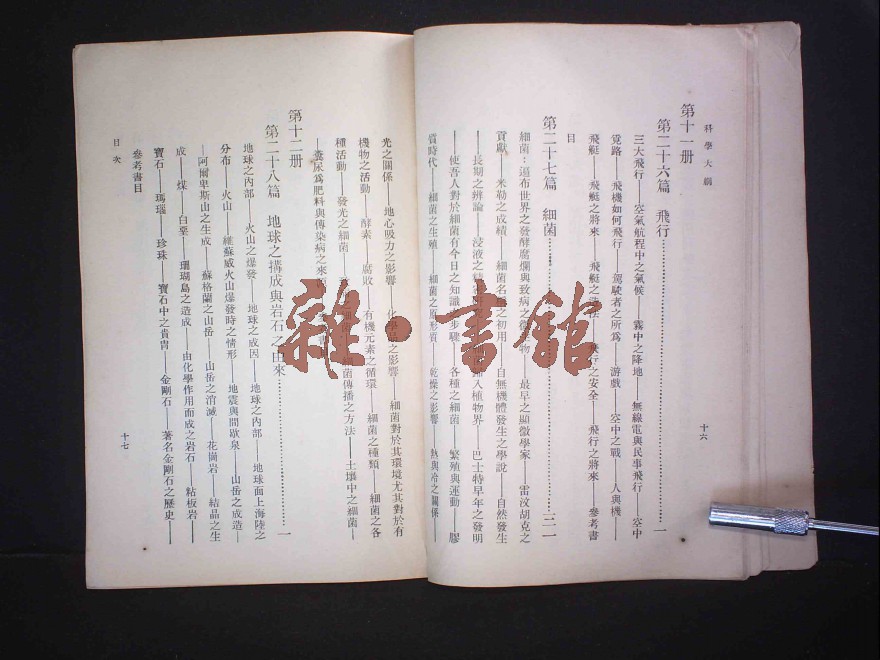 科學大綱
十六
第十一册
第二十六篇 飛行 一
三大飛行——空氣航程中之氣候——霧中之降地——無線電與民事飛行——空中
覓路——飛機如何飛行——駕駛者之所爲——游戲——空中之戰——人與機——
飛艇——飛艇之將來——飛艇之 法—— 行之安全——飛行之將來——參考書
目
第二十七篇 細菌 三一
細菌：遍布世界之發酵腐爛與致病之微 物——最早之顯微學家——雷汶胡克之
貢獻——米勒之成績——細菌名 之初用——自無機體發生之學說——自然發生
——長期之辨論——浸液之 歸入植物界——巴士特早年之發明
——使吾人對於細菌有今日之知識 步驟——各種之細菌——繁殖與運動——膠
質時代——細菌之生殖——細菌之原形質——乾燥之影響——熱與冷之關係——
光之關係——地心吸力之影響——化學品之影響——細菌對於其環境尤其對於有
機物之活動——酵素——腐敗——有機元素之循環——細菌之種類——細菌之各
種活動——發光之細菌—— 細菌傳播之方法——土壤中之細菌—
—糞尿爲肥料與傳染病之來源
第十二册
第二十八篇 地球之構成與岩石之由來 一
地球之內部——火山之爆發——地球之成因——地球之內部——地球面上海陸之
分布——火山——維蘇威火山爆發時之情形——地震與間歇泉——山岳之成造—
—阿爾卑斯山之生成——蘇格蘭之山岳——山岳之消滅——花崗岩——結晶之生
成——煤——白堊——珊瑚島之造成——由化學作用而成之岩石——粘板岩——
寶石——瑪瑙——珍珠——寶石中之貴胄——金剛石——著名金剛石之歷史——
參考書目
目次
十七
雜·書館